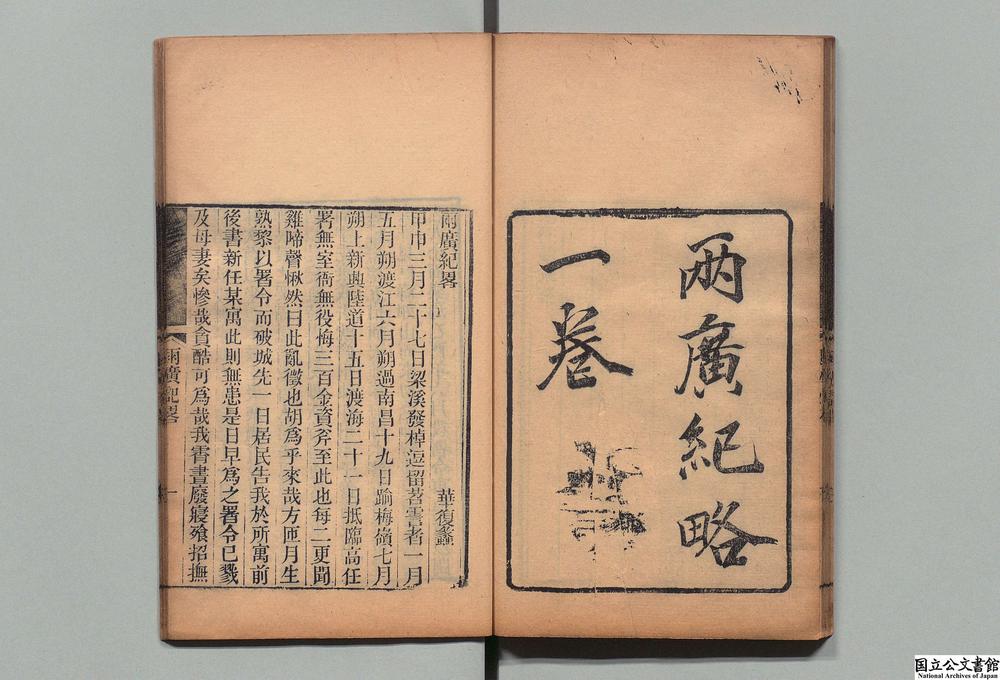 兩廣紀略
一卷
兩廣紀畧
華復蠡
甲申三月二十七日梁溪發棹逗留苕霅者一月
五月朔渡江六月朔過南昌十九日踰梅嶺七月
朔上新興陸道十五日渡海二十一日抵臨高任
署無室衙無役悔三百金資斧至此也每二更聞
雞啼聲愀然曰此亂徵也胡爲乎來哉方匝月生
熟黎以署令而破城先一日居民告我於所寓前
後書新任某寓此則無患是日早爲之署令已戮
及母妻矣慘哉貪酷可爲哉我宵晝廢寢飧招撫
兩廣紀畧
一
国立公文書館
National Archives of Japan